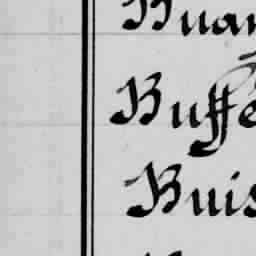 Buan
Buffe
Buis